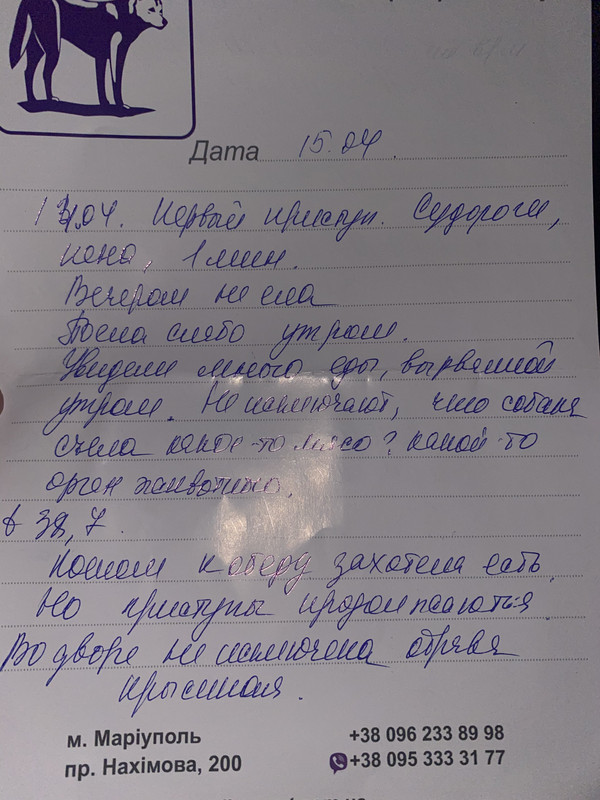 Дата 15.04.
13.04. Первый приступ. Судороги,
пена, 1 мин.
Вечером не ела
Поела слабо утром.
Увидели много еды, вырванной
утром. Не исключают, что собака
съела какое-то мясо? какой-то
орган животного.
t 38,7
Потом к обеду захотела есть,
Но приступы продолжаются
Во дворе не исключена отрава
крысиная.
м. Маріуполь
пр. Нахімова, 200
+38 096 233 89 98
+38 095 333 31 77